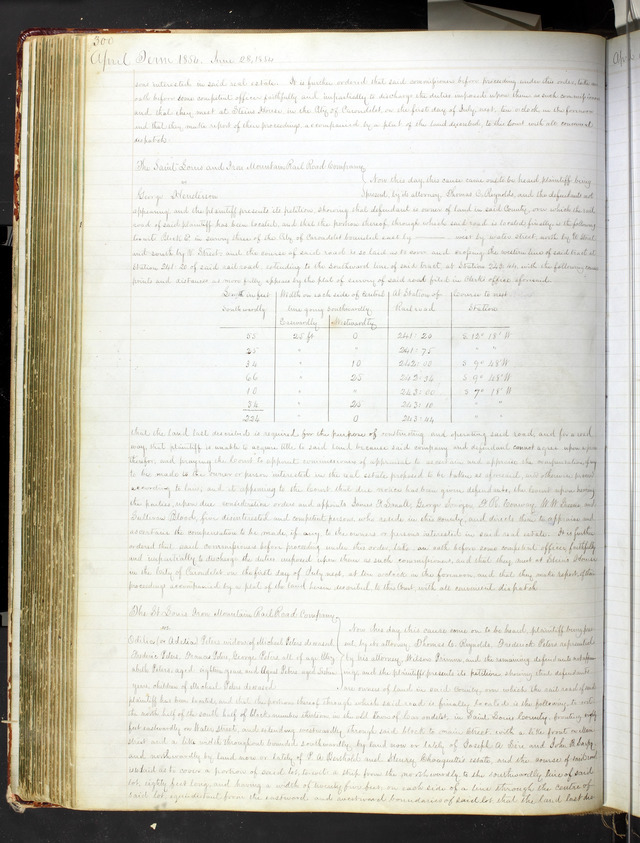 300
April Term 1854. June 28, 1854
own interested in said real estate. It is further ordered that said commissioners before proceeding under this order, take an
oath before some competent officer faithfully and impartially to discharge the duties imposed upon them as such commissioners
and that they meet at Steins House in the City of Carondelet on the first day of July next, ten o'clock in the forenoon
and that they make report of their proceedings accompanied by a plat of the land described, to this Court with all convenient
dispatch.
The Saint Louis and Iron Mountain Rail Road Company
vs
Now this day this cause came on to be heard plaintiff being
George Henderson
present by its attorney Thomas C. Reynolds, and the defendants not
appearing and the plaintiff presents its petition, showing that defendant is owner of land in said County, over which the rail
road of said plaintiff has been located, and that the portion thereof through which said road is located finally is the following
in survey three of the City of Carondelet bounded east by west by water street, north by Street
and south by Street, and the course of said road is as laid out over and crossing the western line of said tract at
Station 241.20 of said rail road extending to the southward line of said tract, at Station 243.44 with the following courses
points and distances as more fully appears by the plat of survey of said road filed in Clerks office aforesaid
Length in feet Width on each side of central At Station of Course to next
southwardly line going southwardly Rail road Station
Eastwardly Westwardly
55 25 ft 0 241.20 S 12° 18' W
25 " " 241.75 " "
34 " 10 242.00 S 9° 48' W
66 " 25 242.34 S 9° 48' W
10 " " 243.00 S 7° 18' W
34 " 25 243.10 " "
224 " 0 243.44
that the land last described is required for the purpose of constructing and operating said road, and for a road
way, that plaintiff is unable to acquire title to said land because said company and defendant cannot agree upon a price
therefor, and praying the Court to appoint commissioners of appraisers to ascertain and appraise the compensation, if any
to be made to the owner or person interested in the real estate proposed to be taken as aforesaid, and otherwise proceed
according to law, and it appearing to the Court that due notice has been given defendants, the Court upon hearing
the parties, upon due consideration orders and appoints James George R. Conway, W. W. Greene and
Sullivan Blood, five disinterested and competent persons who reside in this county, and directs them to appraise and
ascertain the compensation to be made, if any, to the owners or persons interested in such real estate. It is further
ordered that said commissioners before proceeding under this order, take an oath before some competent officer, faithfully
and impartially to discharge the duties imposed upon them as such commissioners, and that they meet at Steins House
in the City of Carondelet on the first day of July next, at ten o'clock in the forenoon, and that they make report of their
proceedings accompanied by a plat of the land herein described to this Court, with all convenient dispatch
The St. Louis Iron Mountain Rail Road Company
vs
Now this day this cause came on to be heard, plaintiff being pres-
Peters widow of Michael Peters deceased
ent by its attorney Thomas C. Reynolds, Frederick Peters represented
Frederic Peters, Francis Peters, George Peters all of age Eliz-
by his attorney, Wilson Primm, and the remaining defendants not appear-
abeth Peters, aged eighteen years and August Peters aged
ing, and the plaintiff presents its petition showing that defendants
years, children of Michael Peters deceased
are owners of land in said County, over which the rail road of said
plaintiff has been located, and that the portion thereof through which said road is finally located is the following, to wit
the north half of the south half of Block number thirteen, in the old Town of Carondelet, in Saint Louis County, fronting eighty
feet eastwardly on Water Street, and extending westwardly through said block to main Street, with a like front on main
street and a like width throughout bounded southwardly, by land now or lately of Joseph and John B.
and northwardly by land now or lately of estate, and the course of said road
is to cover a portion of said lot, to wit a strip from the northwardly to the southwardly line of said
lot, eighty feet long, and having a width of twenty five feet on each side of a line through the centre of
said lot, equidistant from the eastward and westward boundaries of said lot; that the land last des-